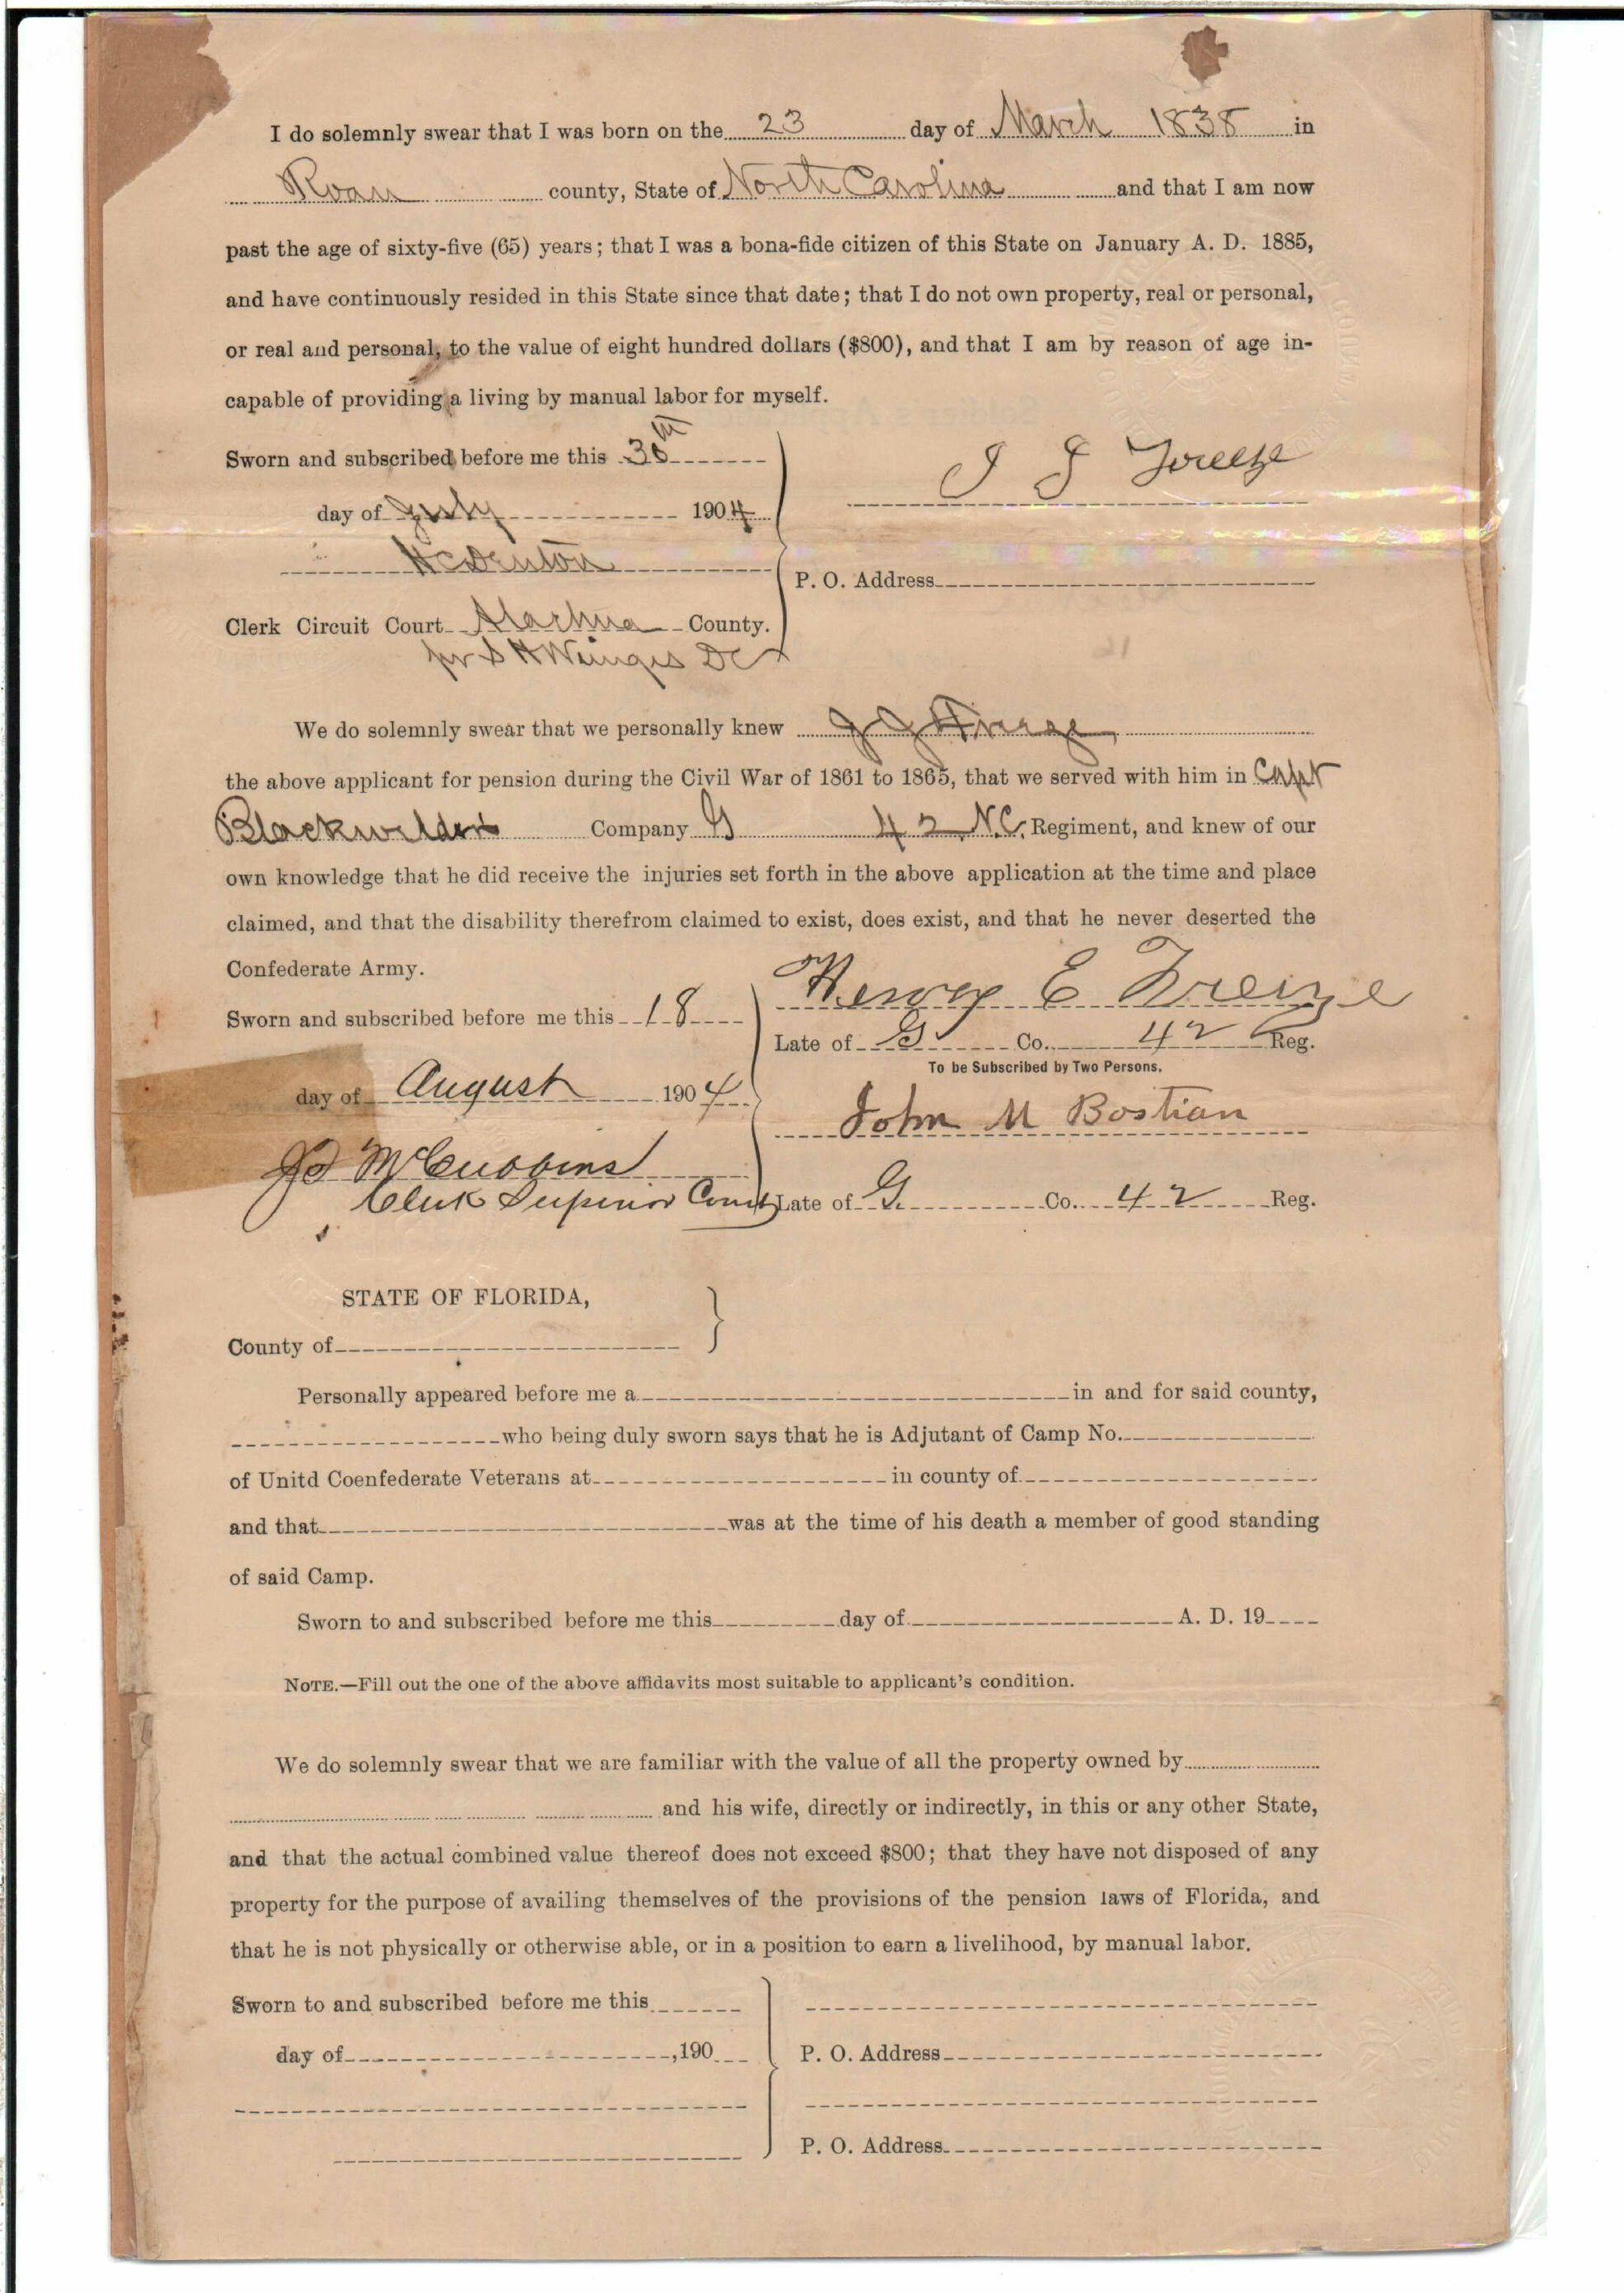 I do solemnly swear that I was born on the 23 day of March 1838 in
Roan county, State of North Carolina and that I am now
past the age of sixty-five (65) years; that I was a bona-fide citizen of this State on January A. D. 1885,
and have continuously resided in this State since that date; that I do not own property, real or personal,
or real and personal, to the value of eight hundred dollars ($800), and that I am by reason of age in-
capable of providing a living by manual labor for myself.
Sworn and subscribed before me this 30th
J J Freeze
day of July 1904
H C Denton
P. O. Address
Clerk Circuit Court Alachua County.
pr S H Wienges DC
21
We do solemnly swear that we personally knew J J Freeze
the above applicant for pension during the Civil War of 1861 to 1865, that we served with him in Capt
Blackwelders Company G 42 N.C. Regiment, and knew of our
own knowledge that he did receive the injuries set forth in the above application at the time and place
claimed, and that the disability therefrom claimed to exist, does exist, and that he never deserted the
Confederate Army.
Henry E Freize
Sworn and subscribed before me this 18
Late of G Co. 42 Reg.
To be Subscribed by Two Persons.
day of August 1904
John M Bostian
McCubbins
Clerk Superior Court
Late of G. Co. 42 Reg.
STATE OF FLORIDA,
County of
Personally appeared before me a in and for said county,
who being duly sworn says that he is Adjutant of Camp No.
of Unitd Coenfederate Veterans at in county of
and that was at the time of his death a member of good standing
of said Camp.
Sworn to and subscribed before me this day of A. D. 19
NOTE.—Fill out the one of the above affidavits most suitable to applicant's condition.
We do solemnly swear that we are familiar with the value of all the property owned by
and his wife, directly or indirectly, in this or any other State,
and that the actual combined value thereof does not exceed $800; that they have not disposed of any
property for the purpose of availing themselves of the provisions of the pension laws of Florida, and
that he is not physically or otherwise able, or in a position to earn a livelihood, by manual labor.
Sworn to and subscribed before me this
day of ,190
P. O. Address
P. O. Address